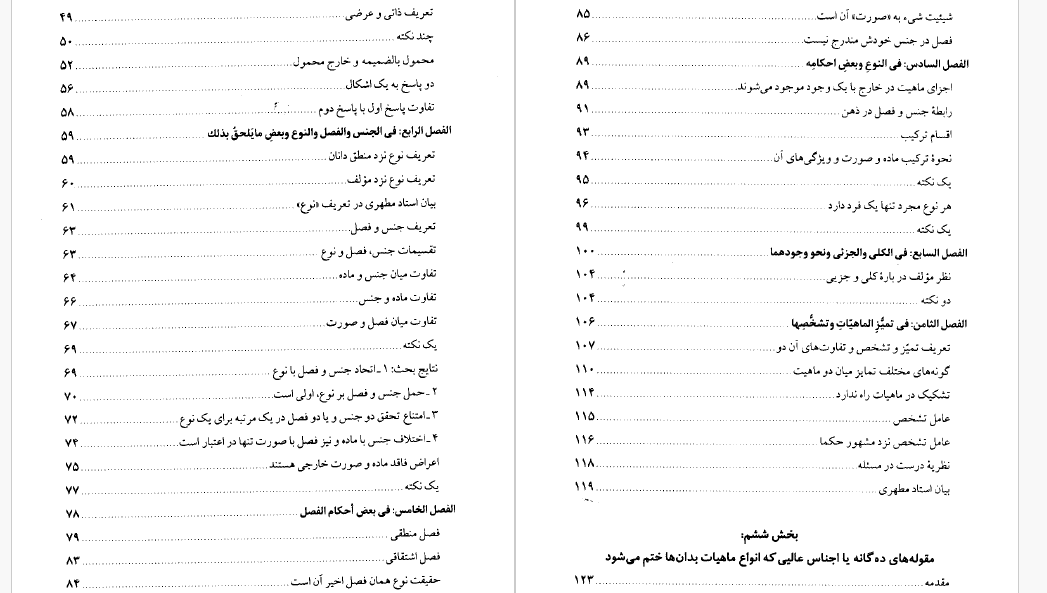 تعریف ذاتی و عرضی ........ ۴۹
چند نکته ........ ۵۰
محمول بالضمیمه و خارج محمول ........ ۵۲
دو پاسخ به یک اشکال ........ ۵۶
تفاوت پاسخ اول با پاسخ دوم ........ ۵۸
الفصل الرابع: فی الجنس والفصل والنوع وبعضِ مایَلحقُ بذلك ........ ۵۹
تعریف نوع نزد منطق دانان ........ ۵۹
تعریف نوع نزد مؤلف ........ ۶۰
بیان استاد مطهری در تعریف «نوع» ........ ۶۱
تعریف جنس و فصل ........ ۶۳
تقسیمات جنس، فصل و نوع ........ ۶۳
تفاوت میان جنس و ماده ........ ۶۴
تفاوت ماده و جنس ........ ۶۶
تفاوت میان فصل و صورت ........ ۶۷
یک نکته ........ ۶۹
نتایج بحث: ۱ـ اتحاد جنس و فصل با نوع ........ ۶۹
۲ـ حمل جنس و فصل بر نوع، اولی است ........ ۷۰
۳ـ امتناع تحقق دو جنس و یا دو فصل در یک مرتبه برای یک نوع ........ ۷۲
۴ـ اختلاف جنس با ماده و نیز فصل با صورت تنها در اعتبار است ........ ۷۴
اعراض فاقد ماده و صورت خارجی هستند ........ ۷۵
یک نکته ........ ۷۷
الفصل الخامس: فی بعض أحکام الفصل ........ ۷۸
فصل منطقی ........ ۷۹
فصل اشتقاقی ........ ۸۳
حقیقت نوع همان فصل اخیر آن است ........ ۸۴
شیئیت شیء به «صورت» آن است ........ ۸۵
فصل در جنس خودش مندرج نیست ........ ۸۶
الفصل السادس: فی النوع وبعضِ احکامِه ........ ۸۹
اجزای ماهیت در خارج با یک وجود موجود می‌شوند ........ ۸۹
رابطهٔ جنس و فصل در ذهن ........ ۹۱
اقسام ترکیب ........ ۹۳
نحوهٔ ترکیب ماده و صورت و ویژگی‌های آن ........ ۹۴
یک نکته ........ ۹۵
هر نوع مجرد تنها یک فرد دارد ........ ۹۶
یک نکته ........ ۹۹
الفصل السابع: فی الکلی والجزئی ونحوِ وجودهما ........ ۱۰۰
نظر مؤلف در بارهٔ کلی و جزیی ........ ۱۰۴
دو نکته ........ ۱۰۴
الفصل الثامن: فی تمیُّزِ الماهیّاتِ وتشخُّصِها ........ ۱۰۶
تعریف تمیّز و تشخص و تفاوت‌های آن دو ........ ۱۰۷
گونه‌های مختلف تمایز میان دو ماهیت ........ ۱۱۰
تشکیک در ماهیات راه ندارد ........ ۱۱۴
عامل تشخص ........ ۱۱۵
عامل تشخص نزد مشهور حکما ........ ۱۱۶
نظریهٔ درست در مسئله ........ ۱۱۸
بیان استاد مطهری ........ ۱۱۹
بخش ششم:
مقوله‌های ده گانه یا اجناس عالیی که انواع ماهیات بدان‌ها ختم می‌شود
مقدمه ........ ۱۲۳